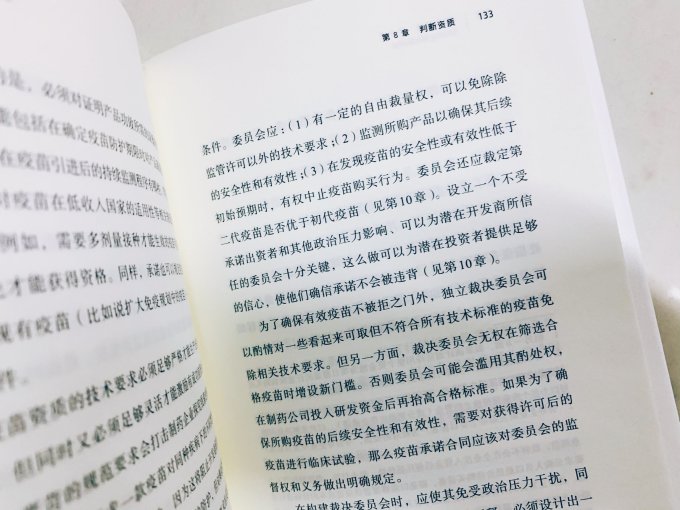 是，必须对证明产品功效所
包括在确定疫苗防护期限时
在疫苗引进后的持续监测程序
对疫苗在低收入国家的适用性
例如，需要多剂量接种才能
才能获得资格。同样，承诺也可以
现有疫苗（比如说扩大免疫规划中的
件。
疫苗资质的技术要求必须足够严格才能
但同时又必须足够灵活才能激励
的规范要求会打击制药企业
一款疫苗对同种疾病
第 8 章 判断资质 133
条件。委员会应：（1）有一定的自由裁量权，可以免除除
监管许可以外的技术要求；（2）监测所购产品以确保其后续
的安全性和有效性；（3）在发现疫苗的安全性或有效性低于
初始预期时，有权中止疫苗购买行为。委员会还应裁定第
二代疫苗是否优于初代疫苗（见第10章）。设立一个不受
承诺出资者和其他政治压力影响、可以为潜在开发商所信
任的委员会十分关键，这么做可以为潜在投资者提供足够
的信心，使他们确信承诺不会被违背（见第10章）。
为了确保有效疫苗不被拒之门外，独立裁决委员会可
以酌情对一些看起来可取但不符合所有技术标准的疫苗免
除相关技术要求。但另一方面，裁决委员会无权在筛选合
格疫苗时增设新门槛。否则委员会可能会滥用其酌处权，
在制药公司投入研发资金后再抬高合格标准。如果为了确
保所购疫苗的后续安全性和有效性，需要对获得许可后的
疫苗进行临床试验，那么疫苗承诺合同应该对委员会的监
督权和义务做出明确规定。
在构建裁决委员会时，应使其免受政治压力干扰，同
必须设计出一